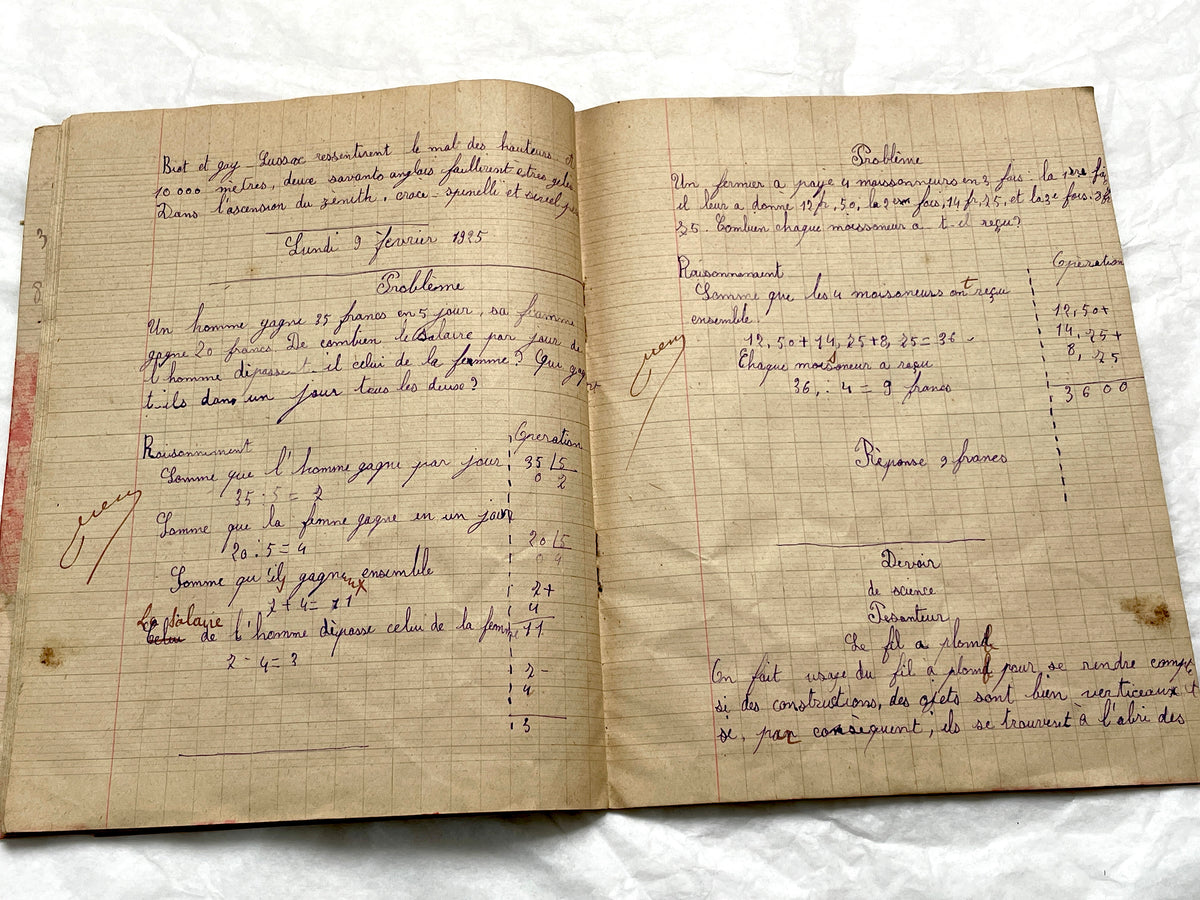 Biot et gay-Lussac ressentirent le mal des hauteurs
10 000 mètres, deux savants anglais faillirent
Dans l'ascension du zénith, croce-spinelli et sivel
Lundi 9 février 1925
Problème
Un homme gagne 35 francs en 5 jour, sa femme
gagne 20 francs. De combien le salaire par jour de
l'homme dépasse-t-il celui de la femme? Que gagent
t-ils dans un jour tous les deuse?
Raisonnement
Operation
Somme que l'homme gagne par jour
35 : 5 = 7
35 5
0 7
Somme que la femme gagne en un jour
20 : 5 = 4
20 5
0 4
Somme qu'ils gagne ensemble
7 + 4 = 11
7 +
4
11
Le salaire
Celui de l'homme dépasse celui de la femme
7 - 4 = 3
7 -
4
3
Problème
Un fermier a payé 4 moissonneurs en 3 fois: la 1ère
il leur a donné 12 fr, 50, la 2em fois, 14 fr, 75, et la 3e fois:
75. Combien chaque moissoneur a-t-il reçu?
Raisonnement
Operation
Somme que les 4 moisoneurs ont reçu
ensemble.
12,50 + 14,75 + 8,75 = 36
12,50 +
14,75 +
8,75
3600
Chaque moissoneur a reçu
36, : 4 = 9 francs
Réponse 9 francs
Devoir
de science
Pesanteur
Le fil à plomb
On fait usage du fil à plomb pour se rendre compte
si des constructions, des ojets sont bien verticeaux et
si, par conséquent, ils se trouvent à l'abri des